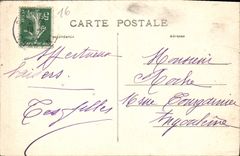 16
CARTE POSTALE
Correspondance
Adresse
Affectueux
baisers
Tes filles
Monsieur
Roche
Rue
Angoulême